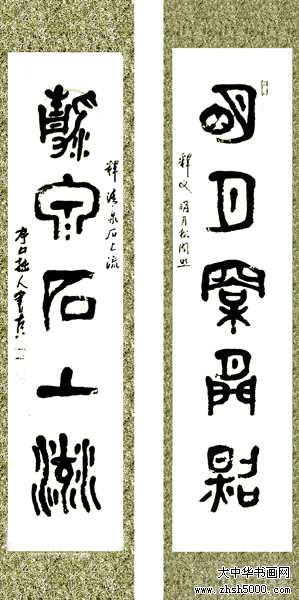 明月松間照
釋文 明月松间照
清泉石上流
釋 清泉石上流
拙人書
大中华书画网
www.zhsh5000.com